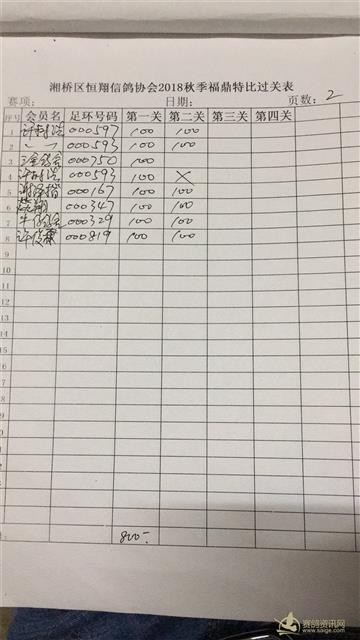 湘桥区恒翔信鸽协会2018秋季福鼎特比过关表
赛项： 日期： 页数：2
序号 会员名 足环号码 第一关 第二关 第三关 第四关
1 000597 100 100
2 000593 100 100
3 000750 100
4 000593 100 ×
5 000167 100 100
6 000347 100 100
7 000329 100 100
8 000819 100 100
9
10
11
12
13
14
15
800.-
赛鸽资讯网
www.saige.com